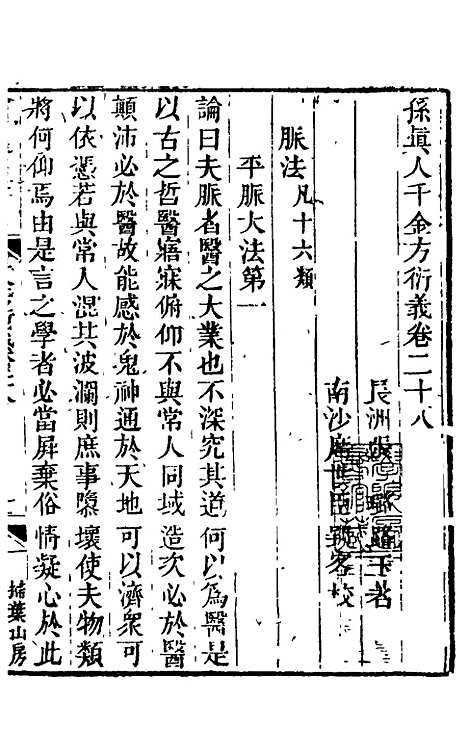 孫眞人千金方衍義卷二十八
長洲張璐路玉著
南沙席世臣郢客校
脈法凡十六類
平脈大法第一
論曰夫脈者醫之大業也不深究其道何以爲醫是
以古之哲醫寤寐俯仰不與常人同域造次必於醫
顛沛必於醫故能感於鬼神通於天地可以濟衆可
以依憑若與常人混其波瀾則庶事隳壞使夫物類
將何仰焉由是言之學者必當屏棄俗情凝心於此
掃葉山房